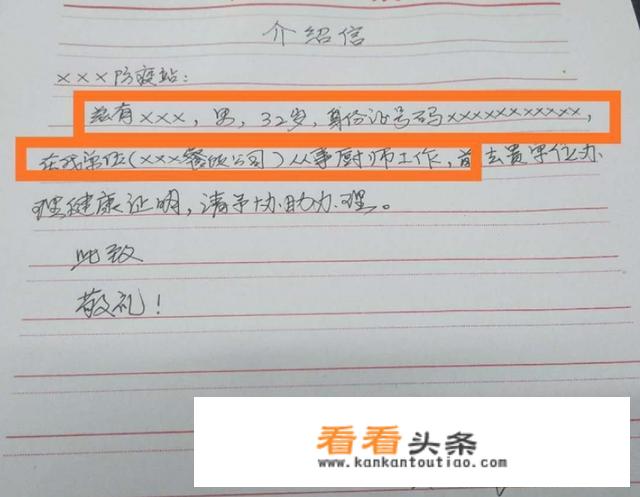 介绍信
×××防疫站:
兹有×××，男，32岁，身份证号码×××××××××××，
在我单位(×××餐饮公司)从事厨师工作，前去贵单位办
理健康证明，请予协助办理。
此致
敬礼!
看看头条
www.kankantoutiao.com